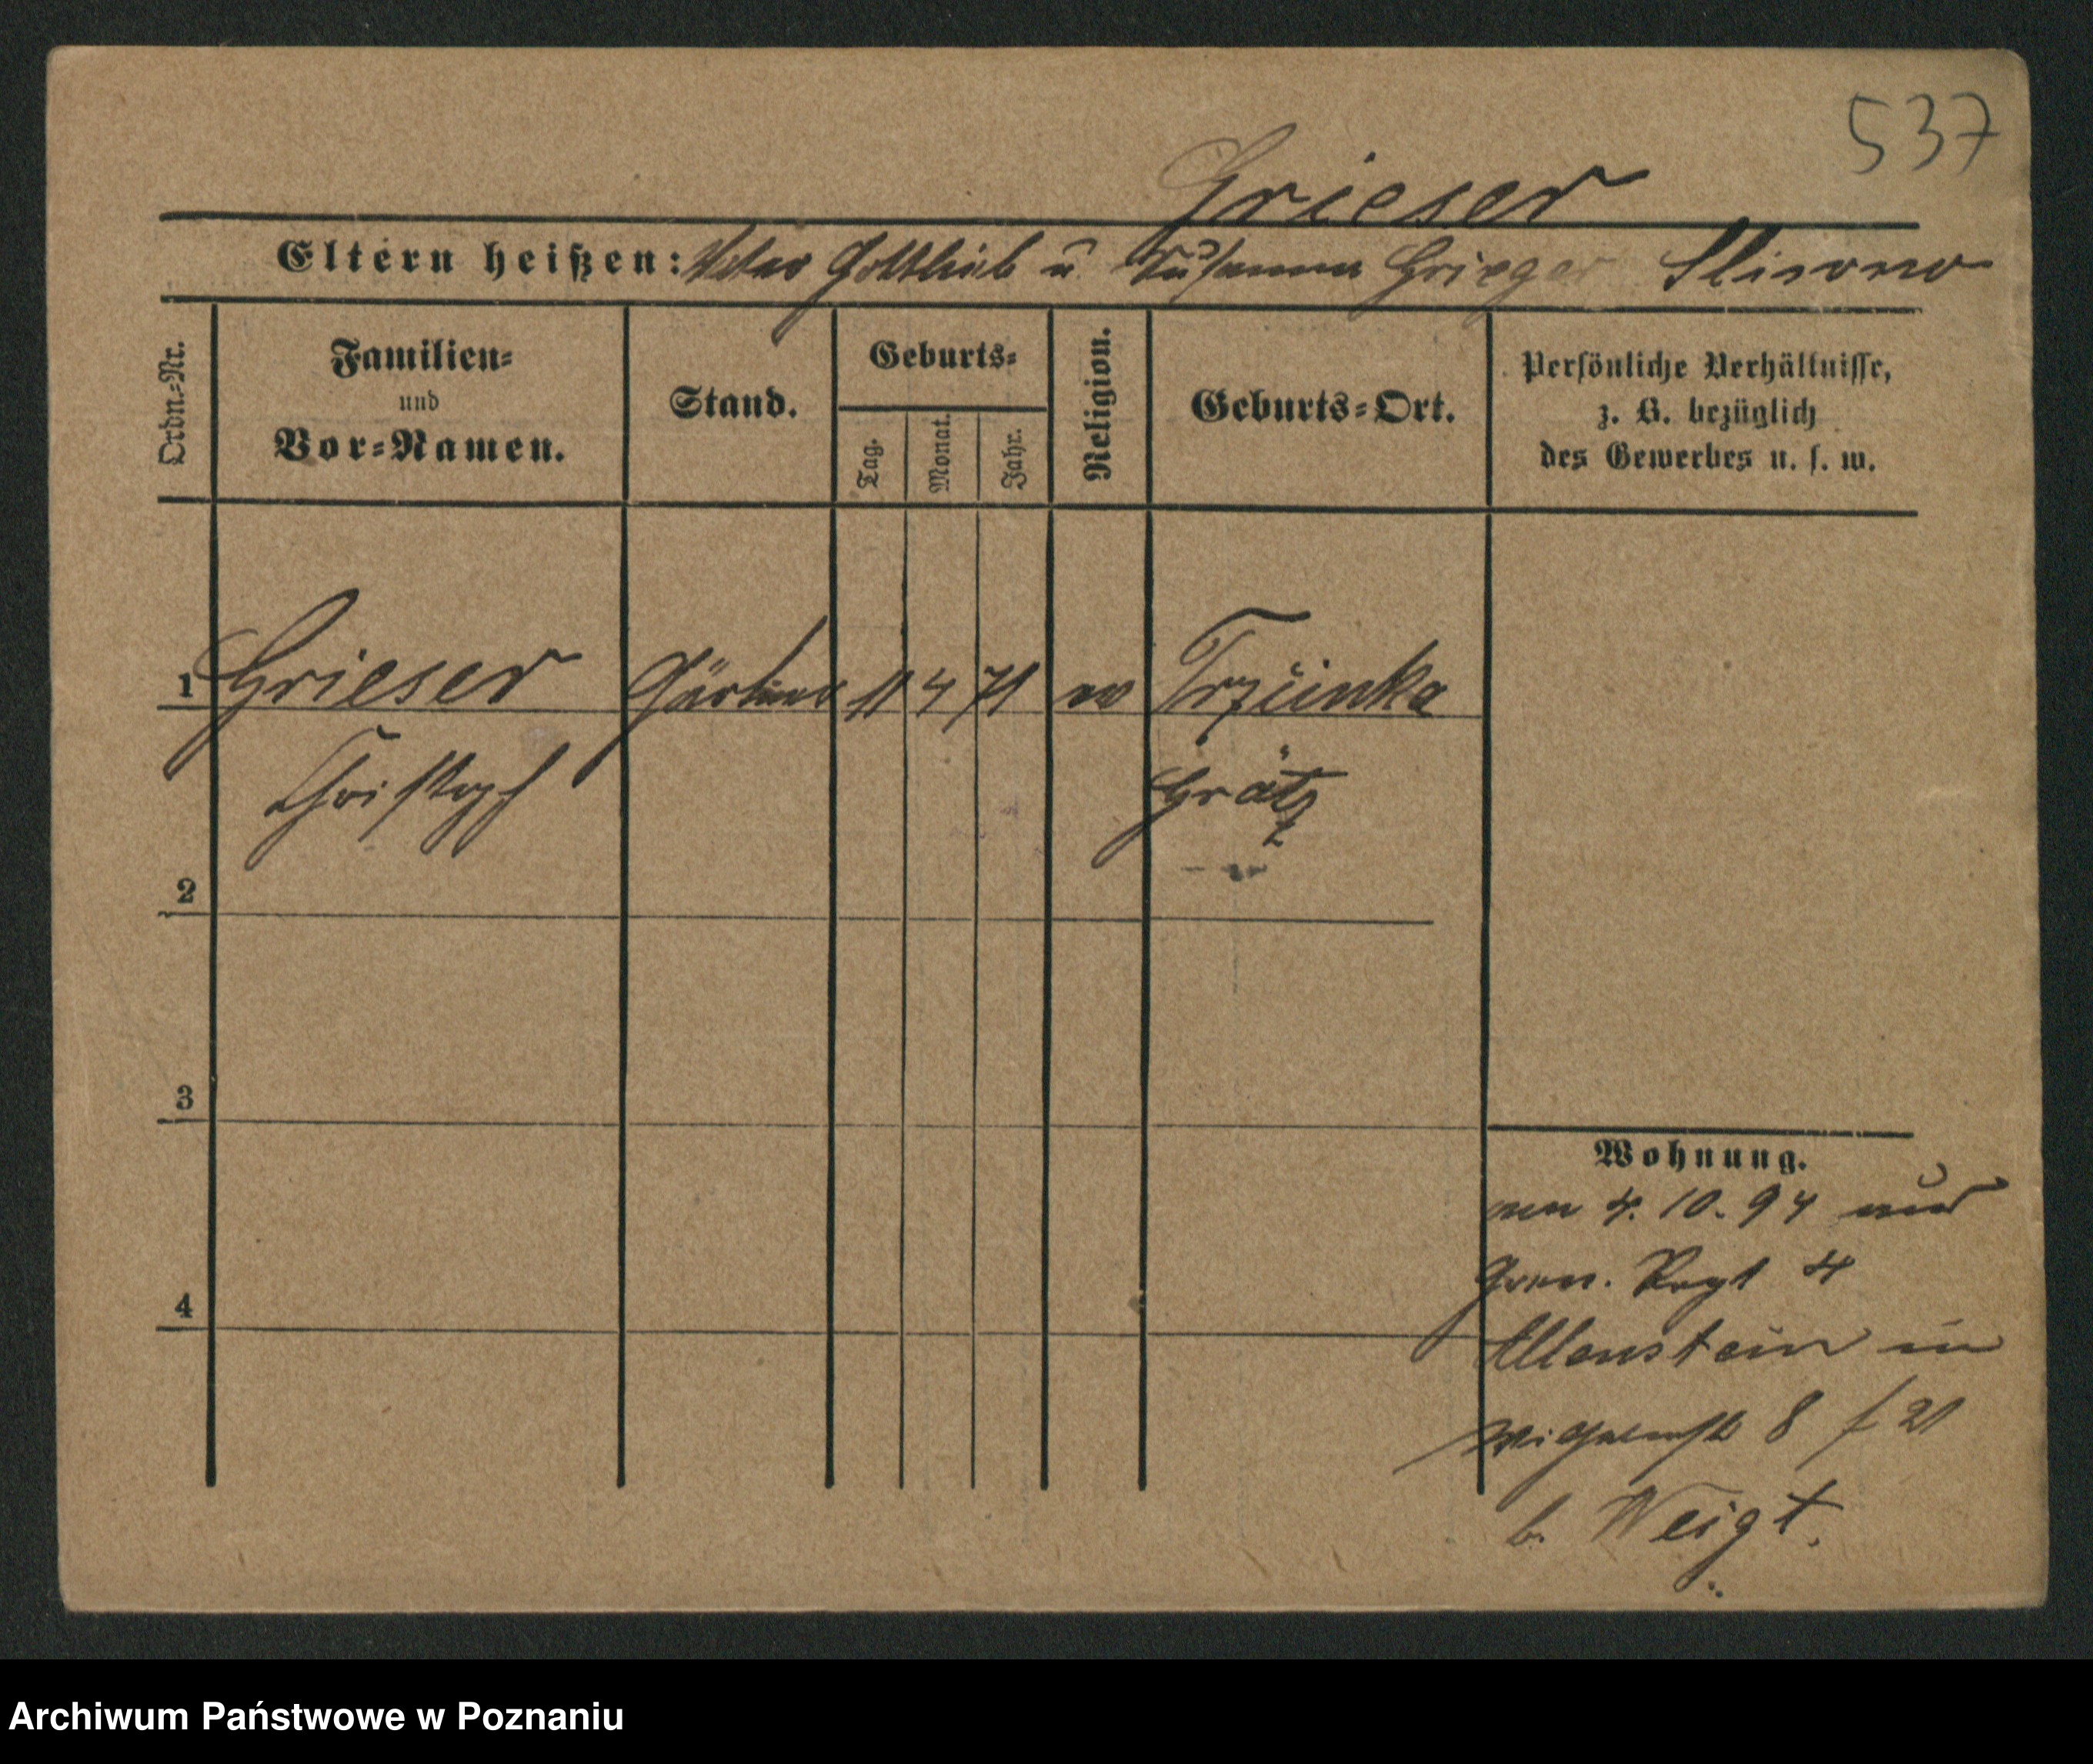 537
Grieser
Eltern heißen: Vater Gottlieb u Susanna Grieger
Ordn.-Nr.
Familien- und Vor-Namen.
Stand.
Geburts-
Tag.
Monat.
Jahr.
Religion.
Geburts-Ort.
Persönliche Verhältnisse,
z. B. bezüglich
des Gewerbes u. s. w.
1 Grieser Gärtner 11 4 71 ev Trzcinka
Christoph Grätz
2
3
4
Wohnung.
4. 10. 94
Gren. Regt 4
Allenstein in
8 f 21
b. Weigt.
Archiwum Państwowe w Poznaniu